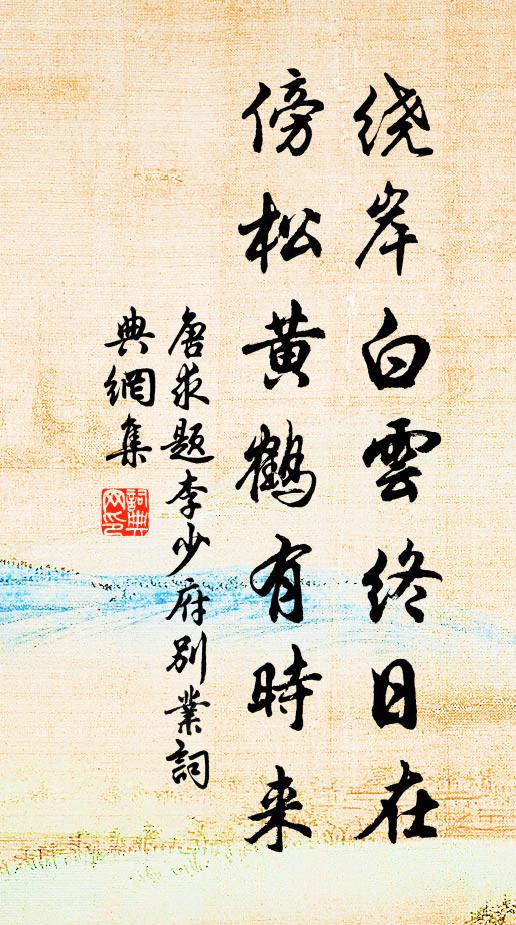 绕岸白雲终日在
傍松黄鹤有時来
唐求题李少府别業詞
典網集
詞典网印